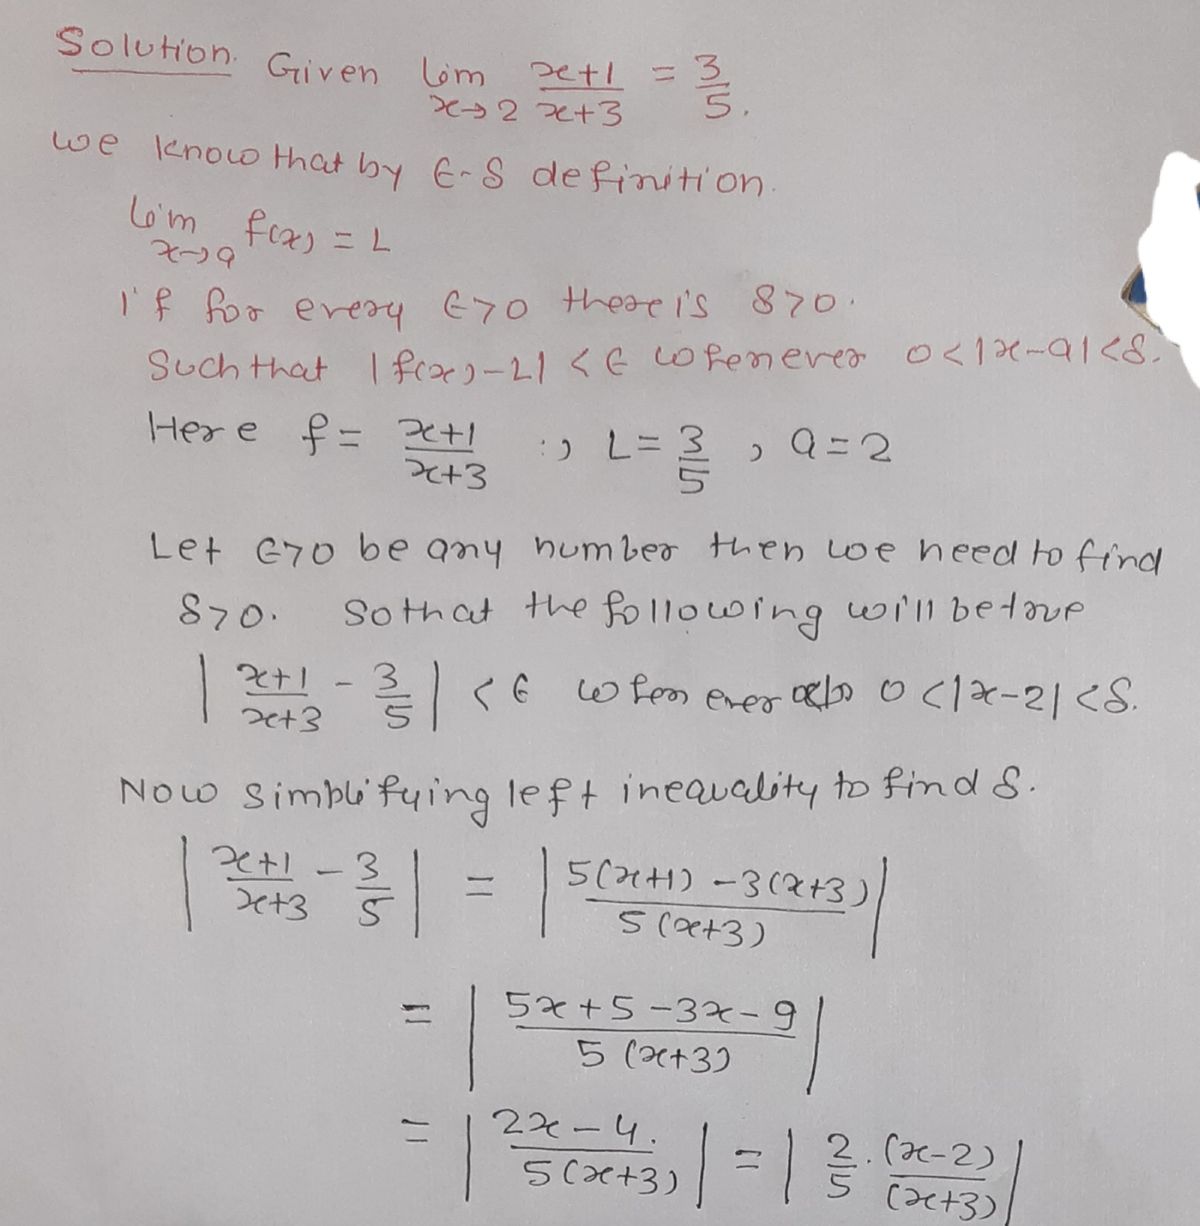 Solution. Given lim x→2 x+1/x+3 = 3/5.
we know that by ϵ-δ definition.
lim x→a f(x) = L
if for every ϵ>0 there is δ>0.
Such that |f(x)-L| < ϵ whenever 0<|x-a|<δ.
Here f = x+1/x+3 ; L = 3/5 , a = 2
Let ϵ>0 be any number then we need to find
δ>0. So that the following will be true
| x+1/x+3 - 3/5 | < ϵ whenever 0<|x-2|<δ.
Now simplifying left inequality to find δ.
| x+1/x+3 - 3/5 | = | 5(x+1) - 3(x+3) / 5(x+3) |
= | 5x+5-3x-9 / 5(x+3) |
= | 2x-4. / 5(x+3) | = | 2/5 . (x-2)/(x+3) |